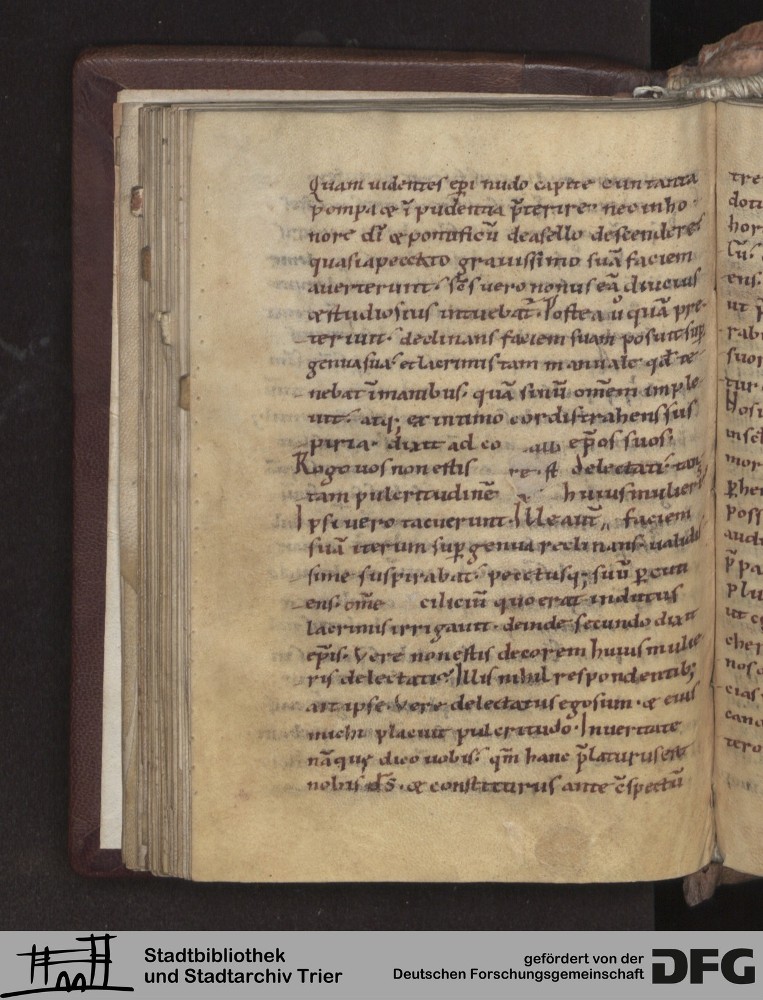 Quam uidentes ep̃i nudo capite cum tanta
p̄ompa & ĩpudentia p̃terire. nec in ho
nore dī & pontificū de asello descenderet
quasi a peccato grauissimo suā faciem
auerterunt. s̄c̄s uero nonnus eā diucius
& studiosius intuebat̃. Postea ū quā pre
teriit. declinans faciem suam posuit sup̱
genua sua. et lacrimis tam manuale qd̄ te
nebat ĩ manibus. quā sinū om̄em imple
uit. atq; ex intimo cordis trahens sus
piria. dixit ad eo ep̃os suos.
Rogo uos non estis re. st̄ delectati. tan
tam pulcritudinē huius mulieris
Ipsi uero tacuerunt. Ille aut̄ faciem
suā iterum sup̱ genua reclinans. ualidis
sime suspirabat. pectusq; suū p̱cuti
ens. om̄e ciliciū quo erat indutus
lacrimis irrigauit. deinde secundo dixit
ep̃is. Vere non estis decorem huius mulie
ris delectati. Illis nihil respondentib;
ait ipse. Vere delectatus ego sum. & eius
michi placuit pulcritudo. In ueritate
nāque dico uobis. qm̄ hanc p̃laturus est
nobis d̄s. & constiturus ante c̃spectū
tre
hor
ens.
ut
suor
mor
poss
plu
ut
cher
cias
tero
Stadtbibliothek
und Stadtarchiv Trier
gefördert von der
Deutschen Forschungsgemeinschaft
DFG